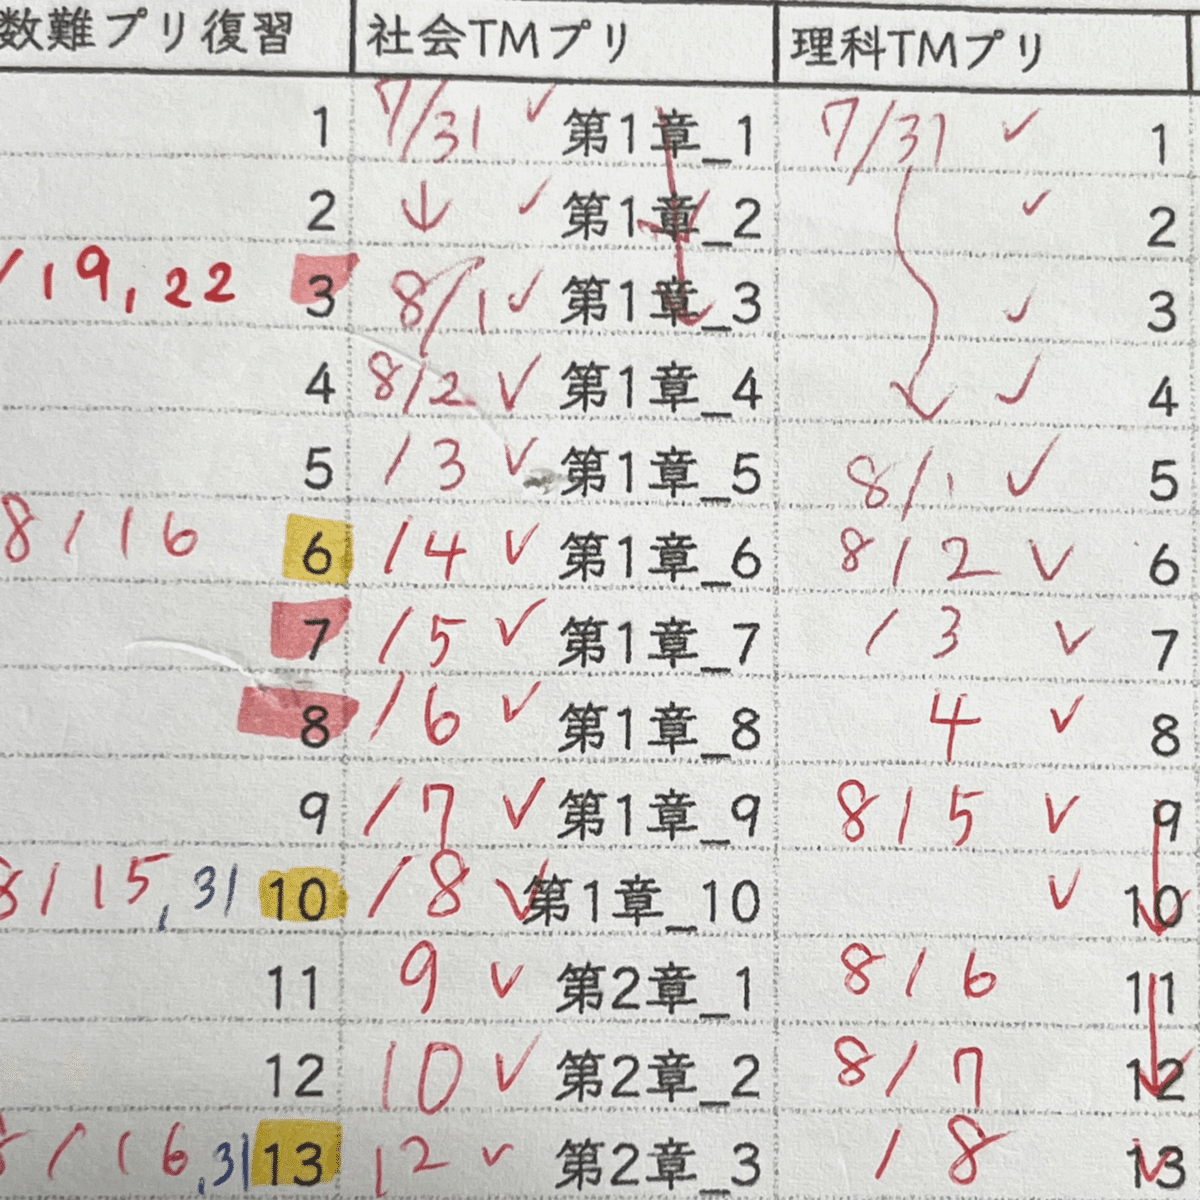 数難プリ復習 社会TMプリ 理科TMプリ
1 7/31 ✓ 第1章_1 7/31 ✓ 1
2 ↓ ✓ 第1章_2 ✓ 2
/19,22 3 8/1 ✓ 第1章_3 ✓ 3
4 8/2 ✓ 第1章_4 ✓ 4
5 /3 ✓ 第1章_5 8/1 ✓ 5
8/16 6 /4 ✓ 第1章_6 8/2 ✓ 6
7 /5 ✓ 第1章_7 /3 ✓ 7
8 /6 ✓ 第1章_8 4 ✓ 8
9 /7 ✓ 第1章_9 8/5 ✓ 9
8/15,31 10 /8 ✓ 第1章_10 ✓ 10
11 9 ✓ 第2章_1 8/6 11
12 10 ✓ 第2章_2 8/7 12
8/16,31 13 12 ✓ 第2章_3 /8 13